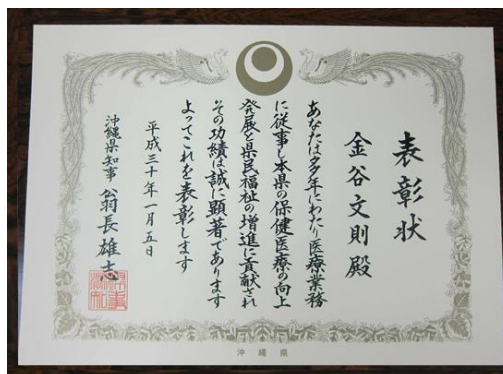 表彰状
金谷文則殿
あなたは多年にわたり医療業務
に従事し本県の保健医療の向上
発展と県民福祉の増進に貢献され
その功績は誠に顕著であります
よってこれを表彰します
平成三十年一月五日
沖縄県知事 翁長雄志
沖縄県